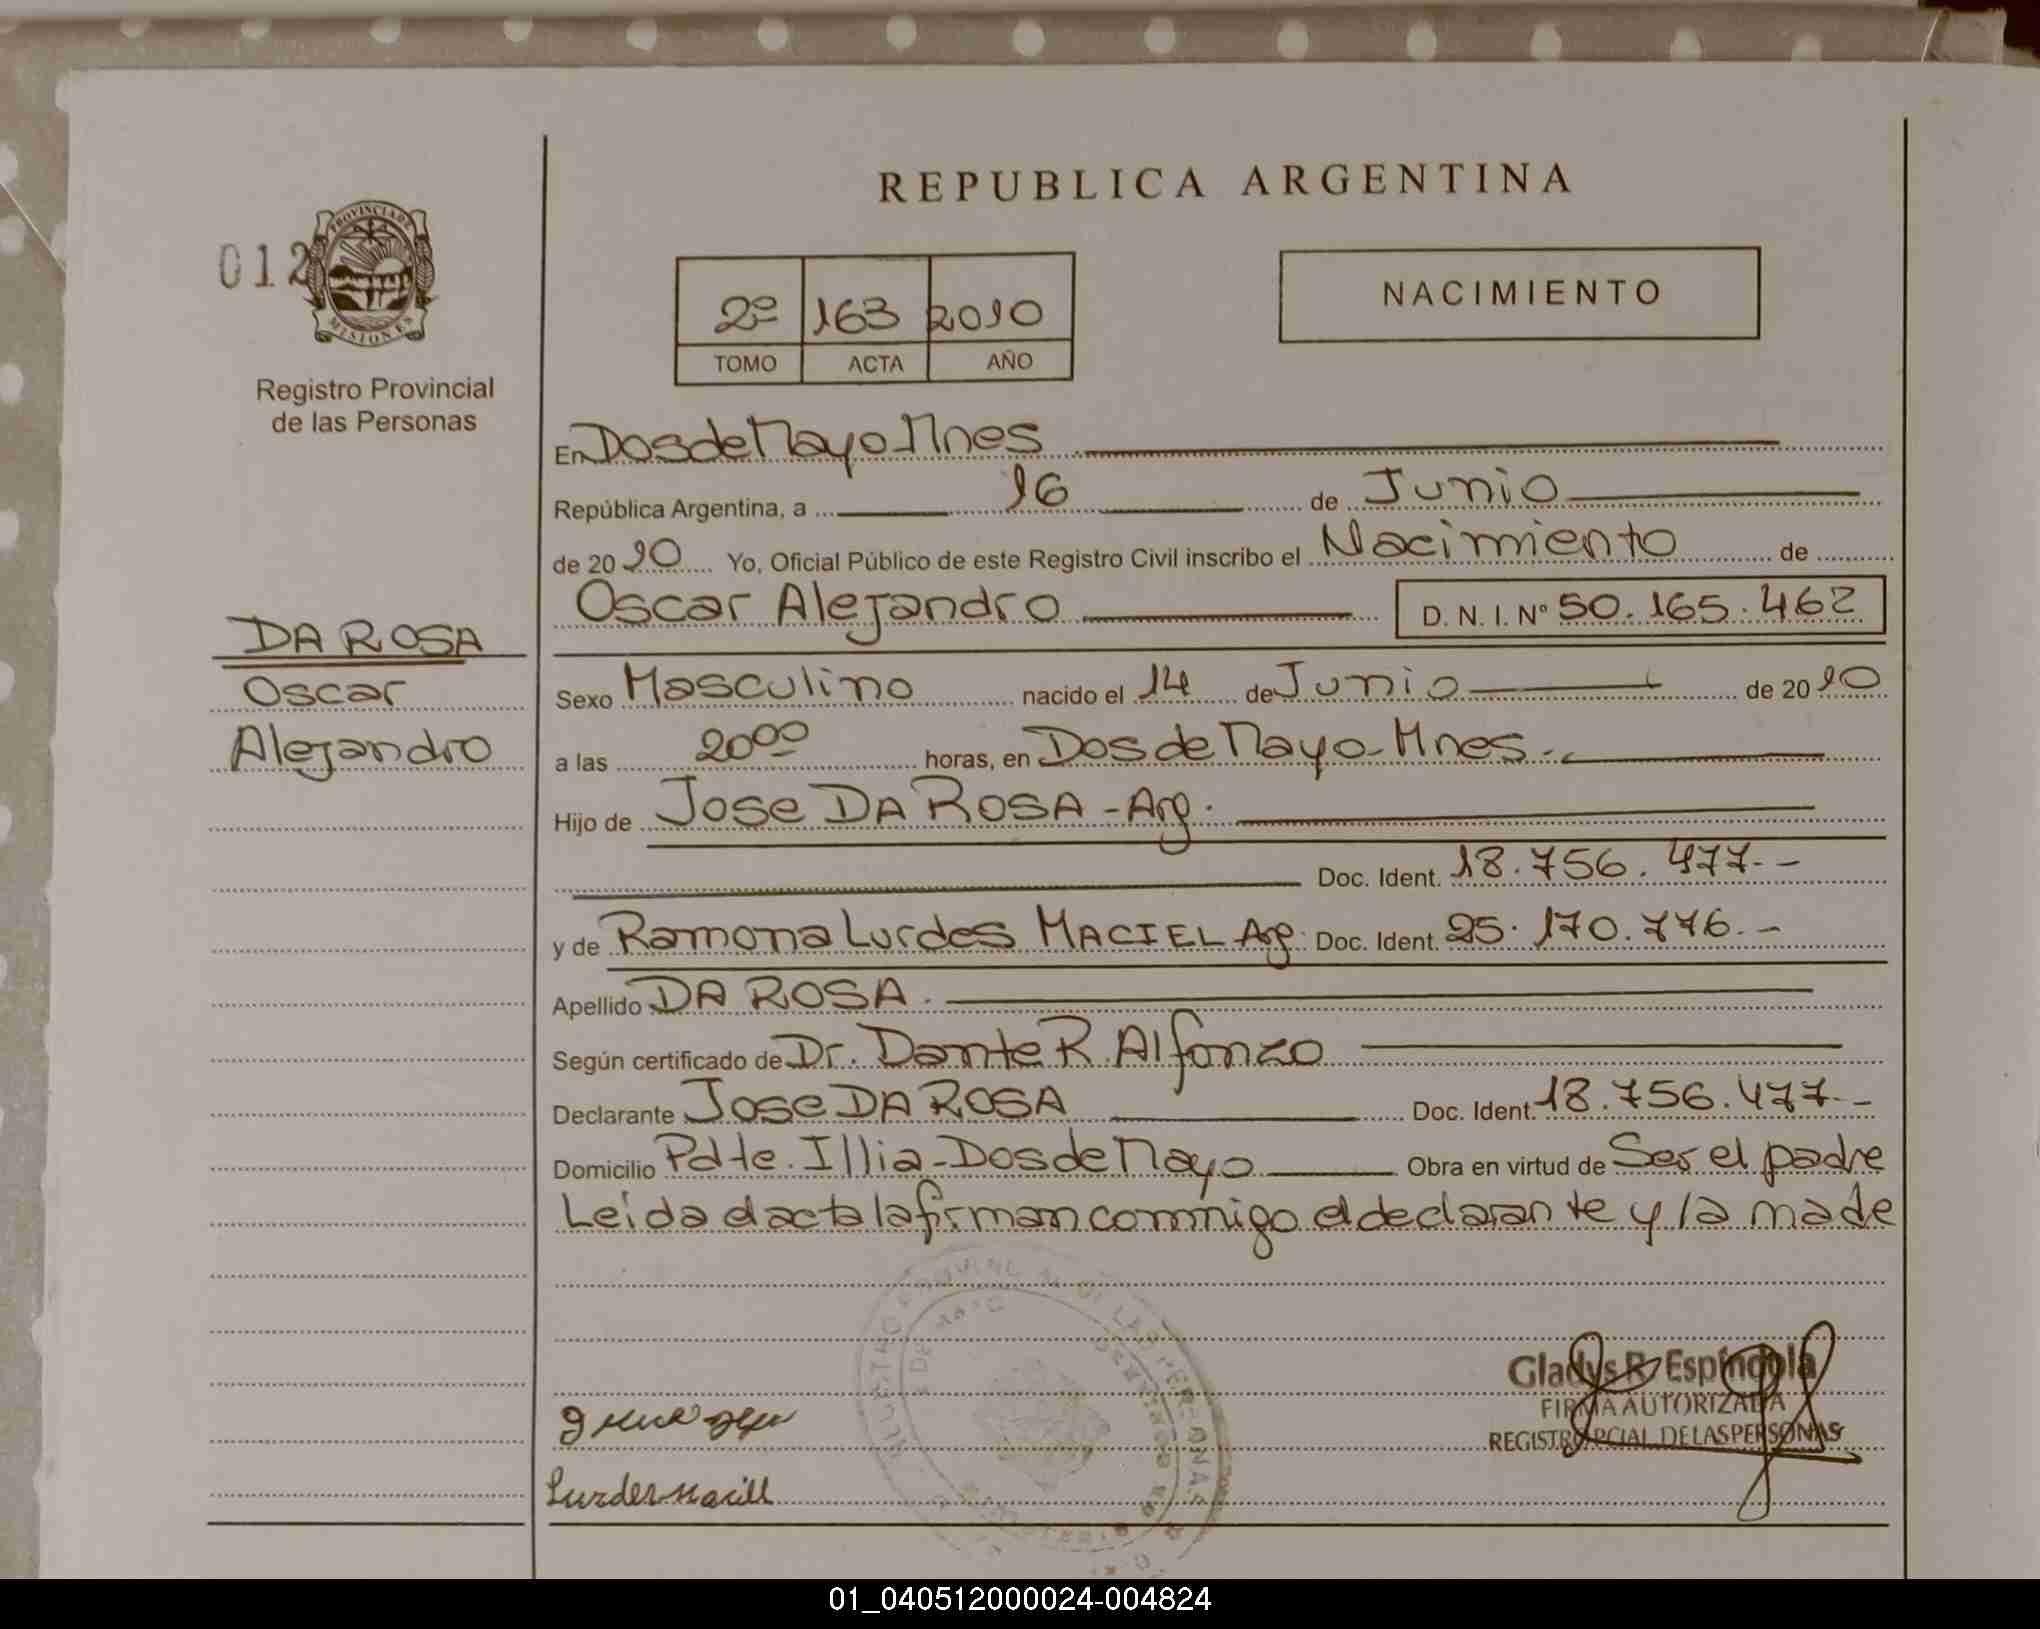 REPUBLICA ARGENTINA
012
PROVINCIA DE
MISIONES
Registro Provincial
de las Personas
2º 163 2010
TOMO ACTA AÑO
NACIMIENTO
DA ROSA
Oscar
Alejandro
En Dos de Mayo-Mnes
República Argentina, a 16 de Junio
de 2010 Yo, Oficial Público de este Registro Civil inscribo el Nacimiento de
Oscar Alejandro D. N. I. Nº 50.165.462
Sexo Masculino nacido el 14 de Junio de 2010
a las 20⁰⁰ horas, en Dos de Mayo-Mnes.-
Hijo de Jose DA ROSA - Arg.
Doc. Ident. 18.756.477.-
y de Ramona Lurdes MACIEL Arg. Doc. Ident. 25.170.776.-
Apellido DA ROSA.
Según certificado de Dr. Dante R. Alfonzo
Declarante Jose DA ROSA Doc. Ident. 18.756.477.-
Domicilio Pdte. Illia-Dos de Mayo Obra en virtud de Ser el padre
Leida el acta la firman conmigo el declarante y la made
REGISTRO PROVINCIAL DE LAS PERSONAS
Gladys R. Espíndola
FIRMA AUTORIZADA
REGISTRO PCIAL DE LAS PERSONAS
01_040512000024-004824